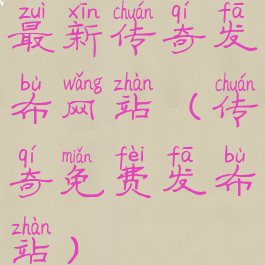 zuì xīn chuán qí fā
最新传奇发
bù wǎng zhàn chuán
布网站（传
qí miǎn fèi fā bù
奇免费发布
zhàn
站）